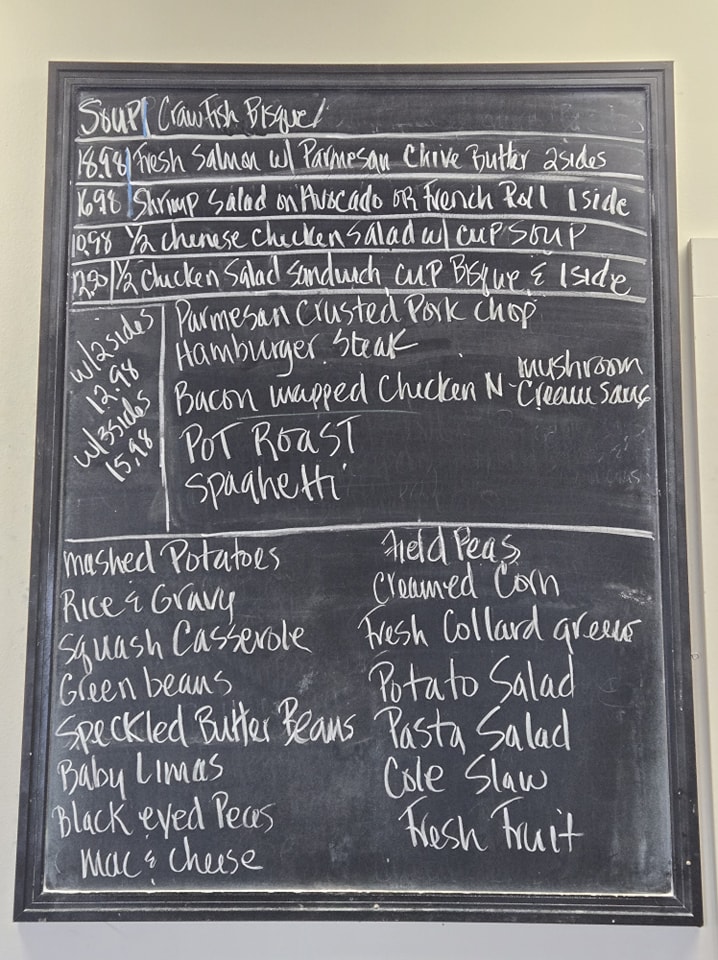 Soup | Crawfish Bisque
18.98 | Fresh Salmon w/ Parmesan Chive Butter 2 sides
16.98 | Shrimp Salad on Avocado OR French Roll 1 side
10.98 1/2 chenese chicken salad w/ cup soup
12.50 | 1/2 Chicken Salad Sandwich, cup Bisque & 1 side
w/2 sides
12.98
w/3 sides
15.98
Parmesan Crusted Pork Chop
Hamburger Steak
Bacon wrapped Chicken N Mushroom Cream Sauce
Pot Roast
Spaghetti
Mashed Potatoes
Rice & Gravy
Squash Casserole
Green beans
Speckled Butter Beans
Baby Limas
Black eyed Peas
Mac & Cheese
Field Peas
Creamed Corn
Fresh Collard greens
Potato Salad
Pasta Salad
Cole Slaw
Fresh Fruit